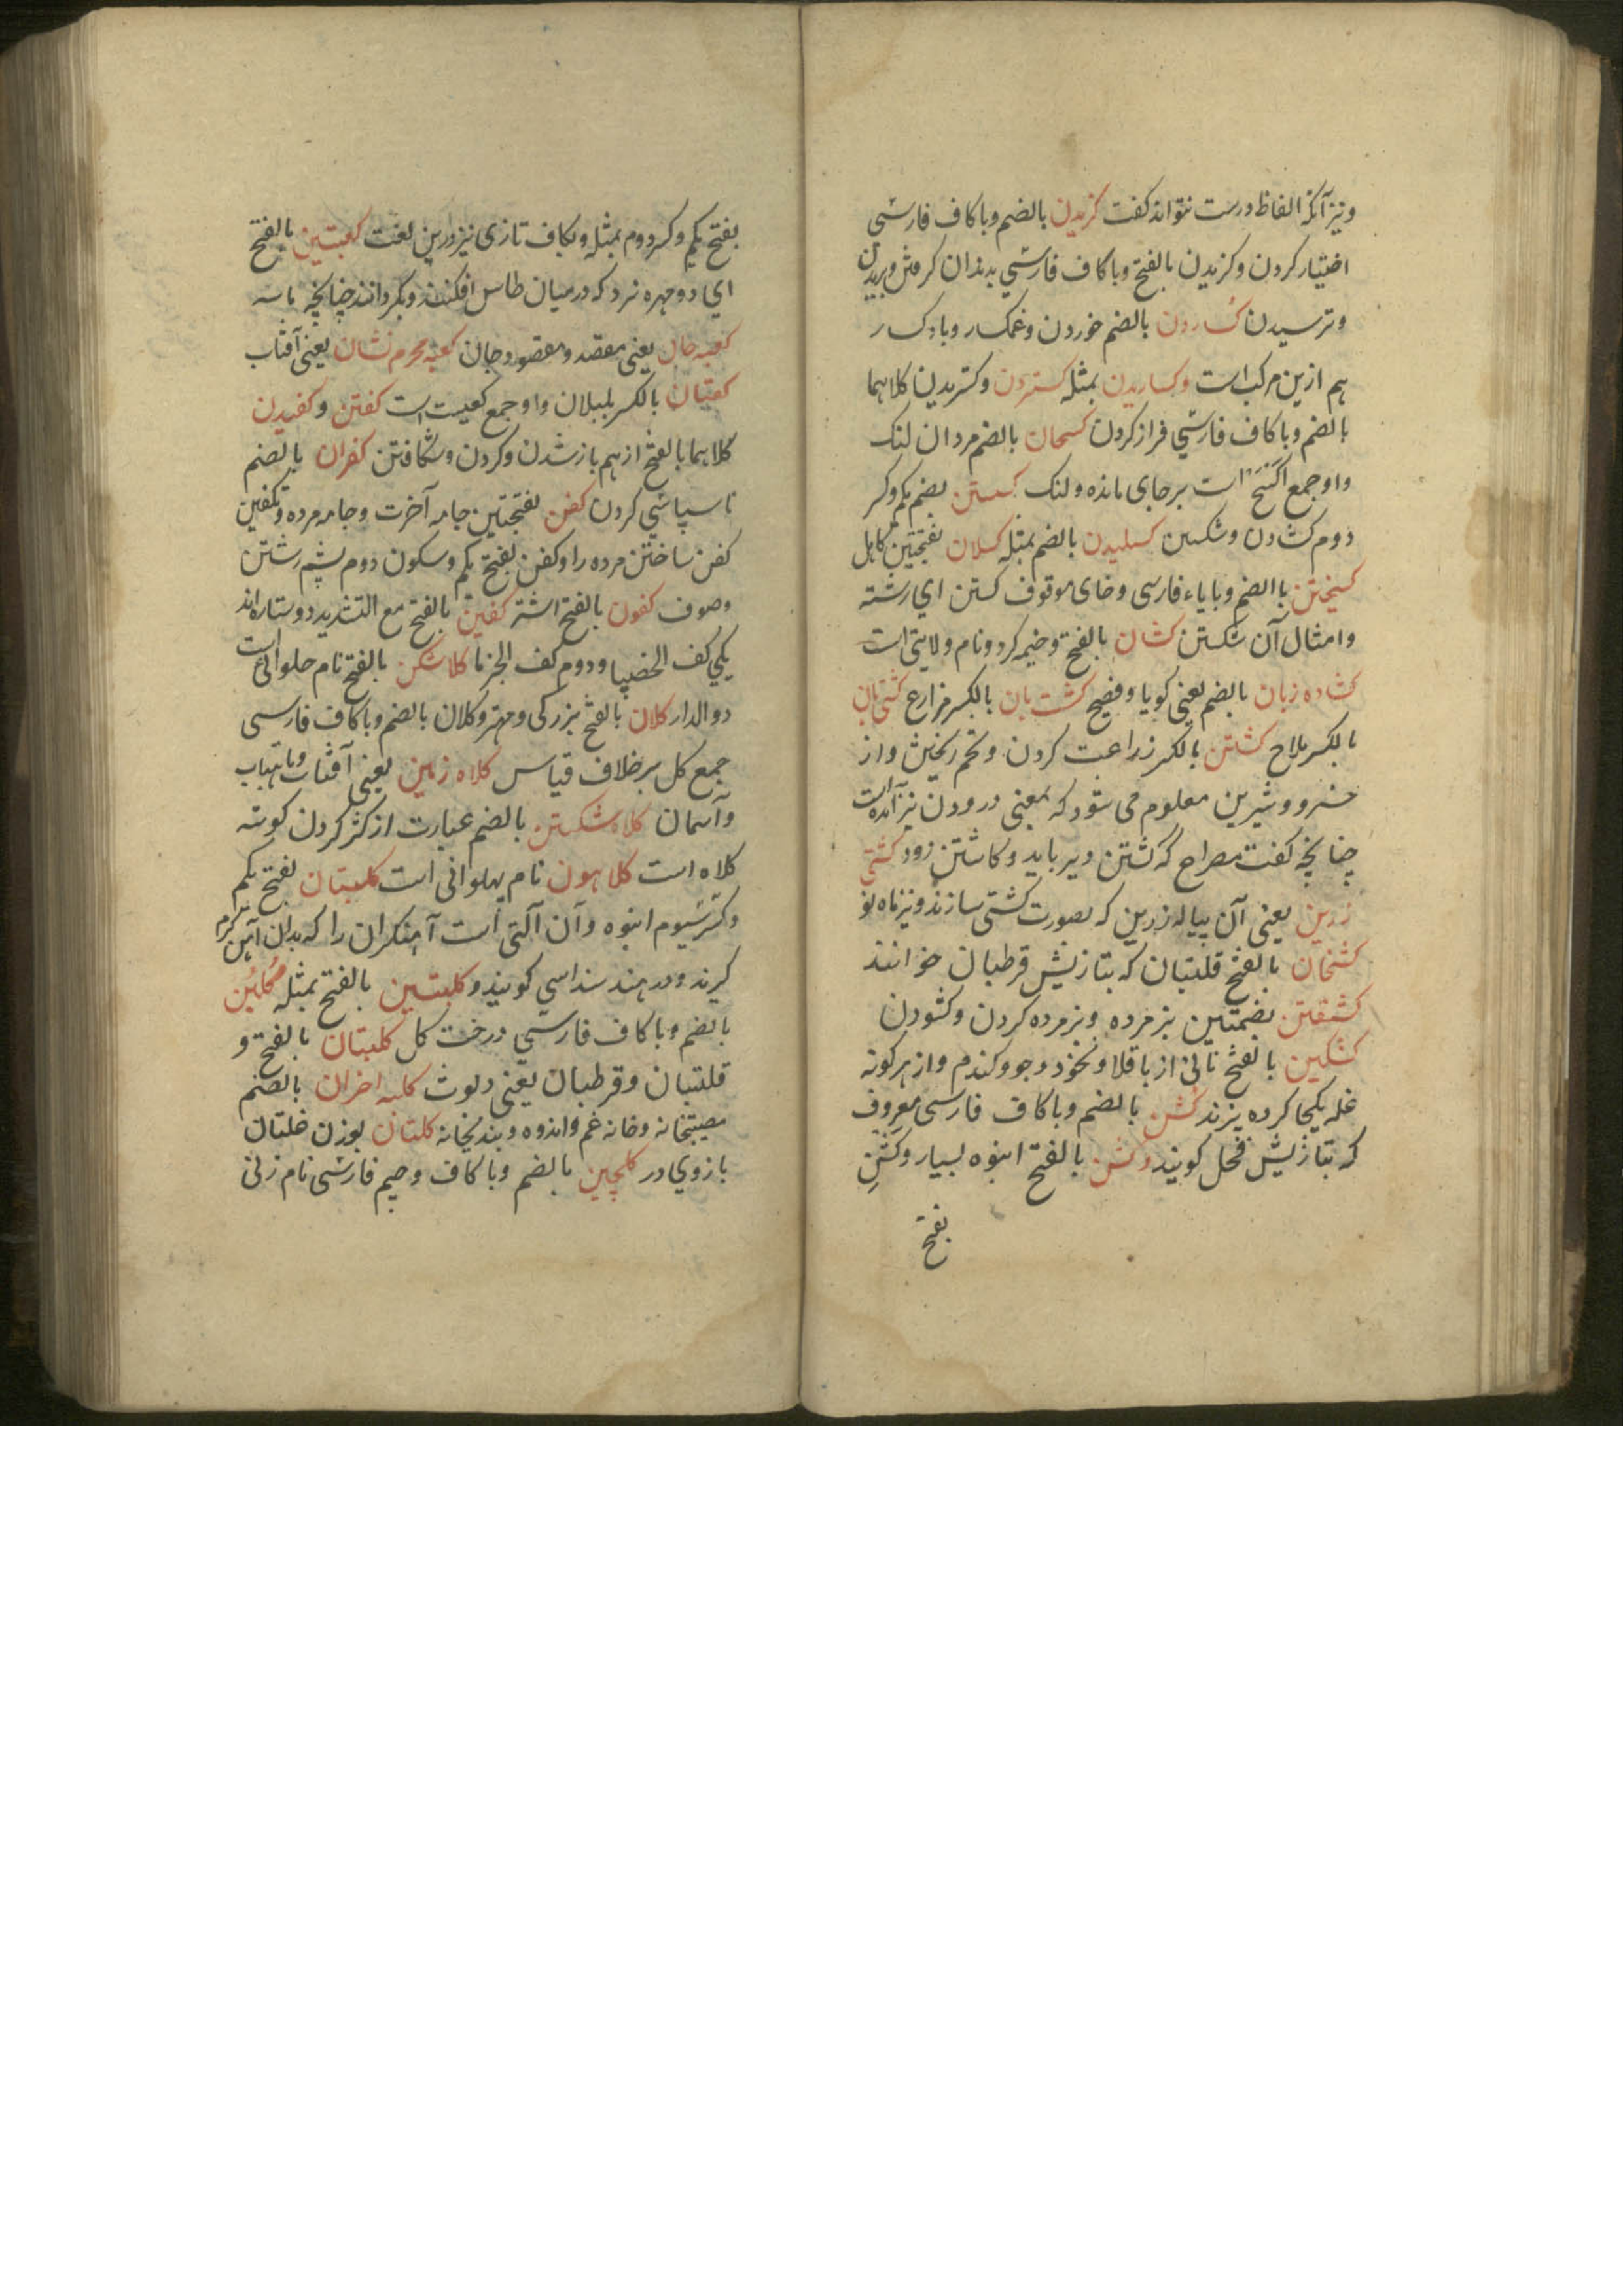 ونیز آنکه الفاظ درست نتواند کفت کزیدن بالضم وبا کاف فارسی
اختیار کردن وکزیدن بالفتح وبا کاف فارسی بدندان کرفتن وبریدن
وترسیدن کساردن بالضم خوردن وغمکسار وباده کسار
هم ازین مرکب است وکساریدن بمثله کستردن وکستریدن کلاهما
بالضم وبا کاف فارسی فراز کردن کسحان بالضم مردان لنک
واو جمع اکسح است برجای مانده ولنک کسستن بضم یکم وکسر
دوم کشادن وشکستن کسلیدن بالضم بمثله کسلان بفتحتین کاهل
کسیختن باالضم وبا یاء فارسی وخای موقوف کستن ای رشته
وامثال آن شکستن کشان بالفتح وخیمه کرد ونام ولایتی است
کشاده زبان بالضم یعنی کویا وفصیح کشت بان بالکسر مزارع کشتی بان
بالکسر ملاح کشتن بالکسر زراعت کردن وتخم ریختن واز
خسرو وشیرین معلوم می شود که بمعنی درودن نیز آمده است
چنانچه کفت مصراح که کشتن دیر باید وکاشتن زود کشتی
زرین یعنی آن پیاله زرین که بصورت کشتی سازند ونیز ماه نو
کشخان بالفتح قلتبان که بتازیش قرطبان خوانند
کشفتن بضمتین پزمرده وپزمرده کردن وکشودن
کشکین بالفتح نانی از باقلا ونخود وجو وکندم واز هر کونه
غله یکجا کرده پزند کشن بالضم وبا کاف فارسی معروف
که بتازیش فحل کویند وکشن بالفتح انبوه بسیار وکشن
بفتح
بفتح یکم وکسر دوم بمثله وبکاف تازی نیز درین لغت کعبتین بالفتح
ای دو مهره نرد که درمیان طاس افکنند وبکردانند چنانچه پاسه
کعبه جان یعنی مقصد ومقصود جان کعبه محرم نشان یعنی آفتاب
کعتان بالکسر بلبلان واو جمع کعیت است کفتن وکفیدن
کلاهما بالفتح ازهم باز شدن وکردن وشکافتن کفران بالضم
ناسپاسی کردن کفن بفتحتین جامه آخرت وجامه مرده وتکفین
کفن ساختن مرده را وکفن بفتح یکم وسکون دوم پشم رشتن
وصوف کفون بالفتح اشته کفین بالفتح مع التشدید دو ستاره اند
یکی کف الخضیبا ودوم کف الجزما کلاشکن بالفتح نام حلوائی است
دوالدار کلان بالفتح بزرکی ومهتر وکلان بالضم وبا کاف فارسی
جمع کل برخلاف قیاس کلاه زمین یعنی آفتاب وماهتاب
وآسمان کلاه شکستن بالضم عبارت از کژ کردن کوشه
کلاه است کلاهون نام پهلوانی است کلبتان بفتح یکم
وکسر سیوم انبوه وآن آلتی است آهنکران را که بدان آهن کرم
کیرند ودر هند سنداسی کویند وکلبتین بالفتح بمثله کلبن
بالضم وبا کاف فارسی درخت کل کلبتان بالفتح و
قلتبان وقرطبان یعنی دلوث کلبه احزان بالضم
مصیبتخانه وخانه غم واندوه وبندیخانه کلتان بوزن غلتان
بازوی در کلچین بالضم وبا کاف وجیم فارسی نام زنی